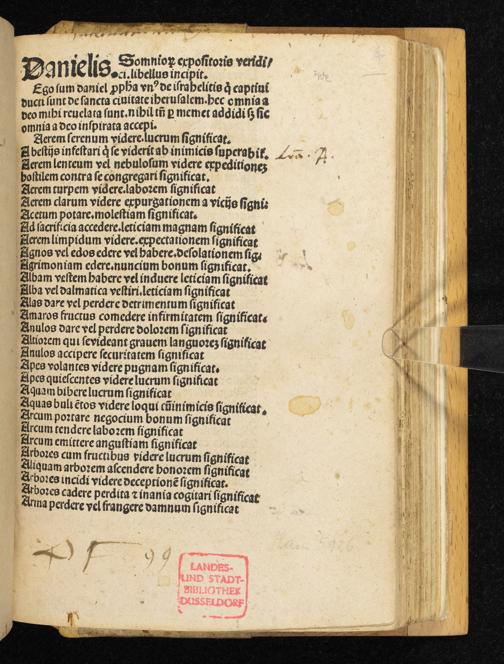 Danielis. Somnioꝝ expositoris veridi/
ci.libellus incipit.
Ego sum daniel ꝓpha vnꝰ de israhelitis q̄ captiui
ducti sunt de sancta ciuitate iherusalem.hec omnia a
deo mihi reuelata sunt.nihil tn̄ ꝑ memet addidi ſꝫ sic
omnia a deo inspirata accepi.
Aerem serenum videre.lucrum significat.
A bestijs infestari q̄ se viderit ab inimicis superabit̉.
Aerem lenteum vel nebulosum videre expeditionez
hostilem contra se congregari significat.
Aerem turpem videre.laborem significat
Aerem clarum videre expurgationem a vicijs signi:
Acetum potare.molestiam significat.
Ad sacrificia accedere.leticiam magnam significat
Aerem limpidum videre.expectationem significat
Agnos vel edos edere vel habere.desolationem sig:
Agrimoniam edere.nuncium bonum significat.
Albam vestem habere vel induere leticiam significat
Alba vel dalmatica vestiri.leticiam significat
Alas dare vel perdere detrimentum significat
Amaros fructus comedere infirmitatem significat.
Anulos dare vel perdere dolorem significat
Altiorem qui se videant grauem languorez significat
Anulos accipere securitatem significat
Apes volantes videre pugnam significat.
Apes quiescentes videre lucrum significat
Aquam bibere lucrum significat
Aquas buliētes videre loqui cū inimicis significat.
Arcum portare negocium bonum significat
Arcum tendere laborem significat
Arcum emittere angustiam significat
Arbores cum fructibus videre lucrum significat
Aliquam arborem ascendere honorem significat
Arbores incidi videre deceptionē significat.
Arbores cadere perdita ⁊ inania cogitari significat
Arma perdere vel frangere damnum significat
99
LANDES-
UND STADT-
BIBLIOTHEK
DÜSSELDORF